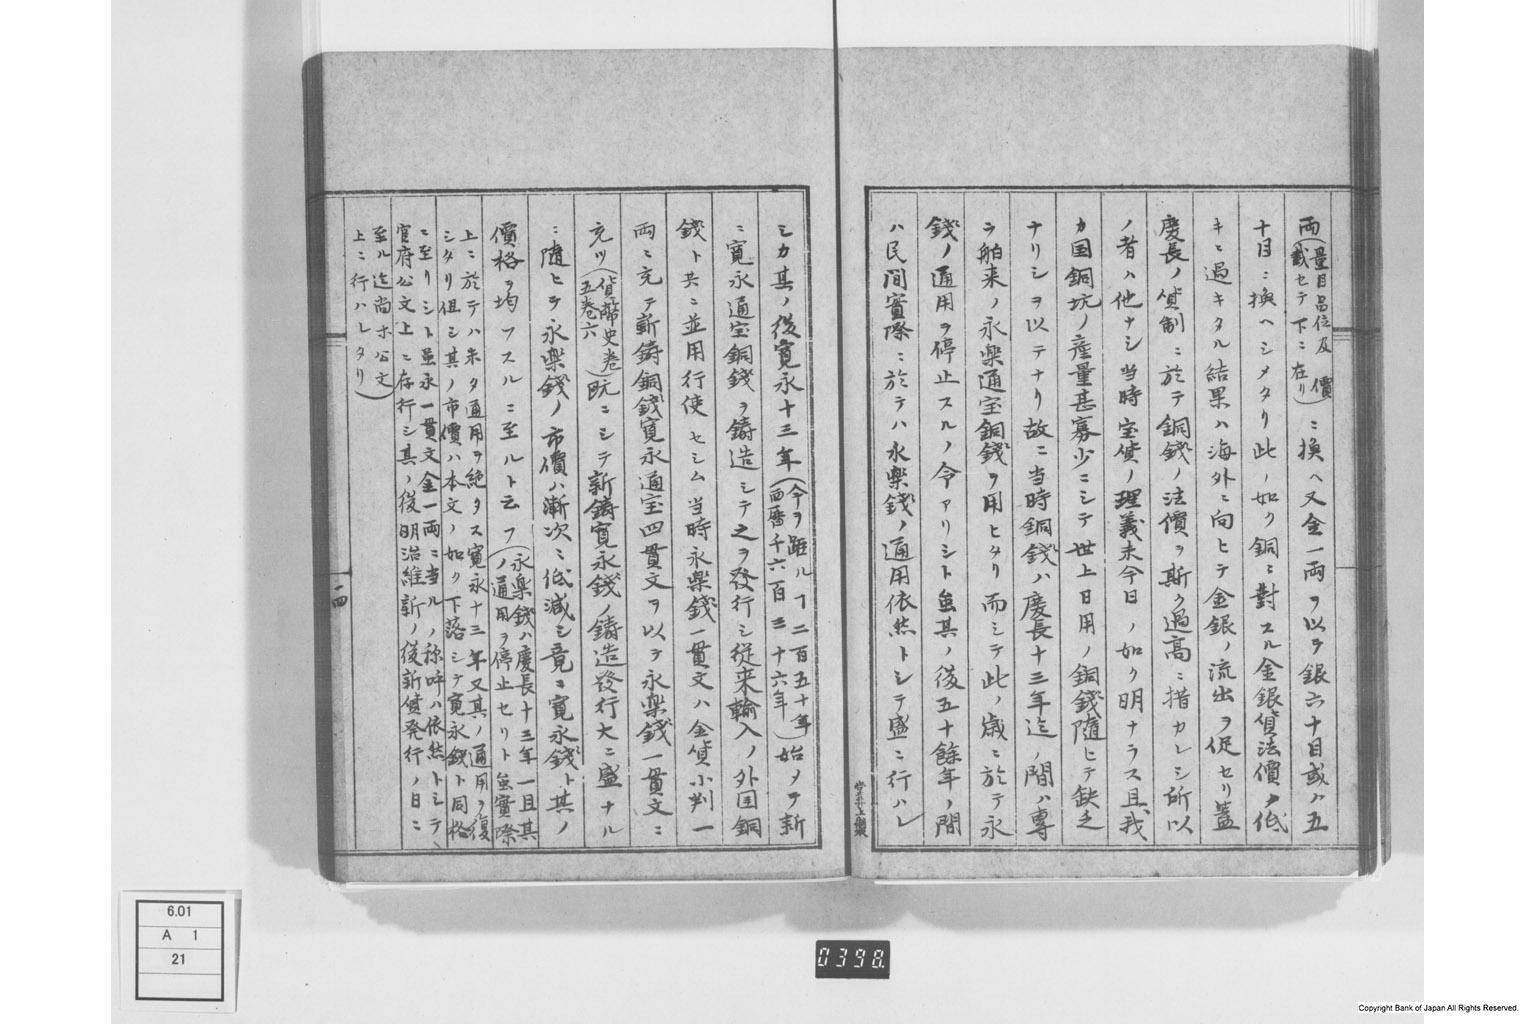 両(量目品位及價
載セテ下ニ在リ)ニ換ヘ又金一両ヲ以テ銀六十目或ハ五
十目ニ換ヘシメタリ此ノ如ク銅ニ對スル金銀貨法價ノ低
キニ過キタル結果ハ海外ニ向ヒテ金銀ノ流出ヲ促セリ蓋
慶長ノ貨制ニ於テ銅錢ノ法價ヲ斯ク過高ニ措カレシ所以
ノ者ハ他ナシ当時宝貨ノ理義未今日ノ如ク明ナラス且我
カ国銅坑ノ産量甚寡少ニシテ世上日用ノ銅錢隨ヒテ缺乏
ナリシヲ以テナリ故ニ当時銅錢ハ慶長十三年迄ノ間ハ專
ラ舶来ノ永樂通宝銅錢ヲ用ヒタリ而シテ此ノ歳ニ於テ永
錢ノ通用ヲ停止スルノ令アリシト虽其ノ後五十餘年ノ間
ハ民間實際ニ於テハ永樂錢ノ通用依然トシテ盛ニ行ハレ
シカ其ノ後寛永十三年(今ヲ距ルヿ二百五十年
西暦千六百三十六年)始メテ新
ニ寛永通宝銅錢ヲ鋳造シテ之ヲ發行シ従来輸入ノ外国銅
錢ト共ニ並用行使セシム当時永樂錢一貫文ハ金貨小判一
両ニ充テ新鋳銅錢寛永通宝四貫文ヲ以テ永樂錢一貫文ニ
充ツ(貨幣史卷
五卷六)既ニシテ新鋳寛永錢ノ鋳造發行大ニ盛ナル
ニ隨ヒテ永樂錢ノ市價ハ漸次ニ低減シ竟ニ寛永錢ト其ノ
價格ヲ均フスルニ至ルト云フ(永樂錢ハ慶長十三年一旦其
ノ通用ヲ停止セリト虽實際
上ニ於テハ未タ通用ヲ絶タス寛永十三年又其ノ通用ヲ復
シタリ但シ其ノ市價ハ本文ノ如ク下落シテ寛永錢ト同格
ニ至リシト虽永一貫文金一両ニ当ルノ称呼ハ依然トシテ
官府公文上ニ存行シ其ノ後明治維新ノ後新貨発行ノ日ニ
至ル迄尚ホ公文
上ニ行ハレタリ)
二四
6.01
A 1
21
0398
Copyright Bank of Japan All Rights Reserved.